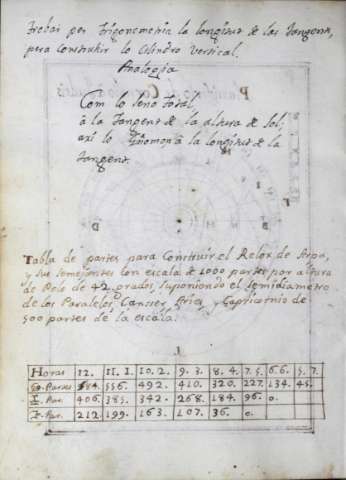 Trobar per Trigonometria la longitut de las Tangents,
pera Construir lo Cilindro vertical.
Analogia
Com lo seno total,
à la Tangent de la altura de Sol;
axi lo Gnomon à la longitut de la
tangent.
Tabla de partes para Construir el Relox de Arpa,
y sus semejantes con escala de 1000 partes por altura
de Polo de 42 grados, suponiendo el semidiametro
de los Paralelos de Cancer, Aries, y Capricornio de
500 partes de la escala.
Horas 12. 11. 1. 10. 2. 9. 3. 8. 4. 7. 5. 6. 6. 5. 7.
Partes 584. 556. 492. 410. 320. 227. 134. 45.
Par. 406. 385. 342. 268. 184. 96. 0.
Par. 212. 199. 163. 107. 36. 0.